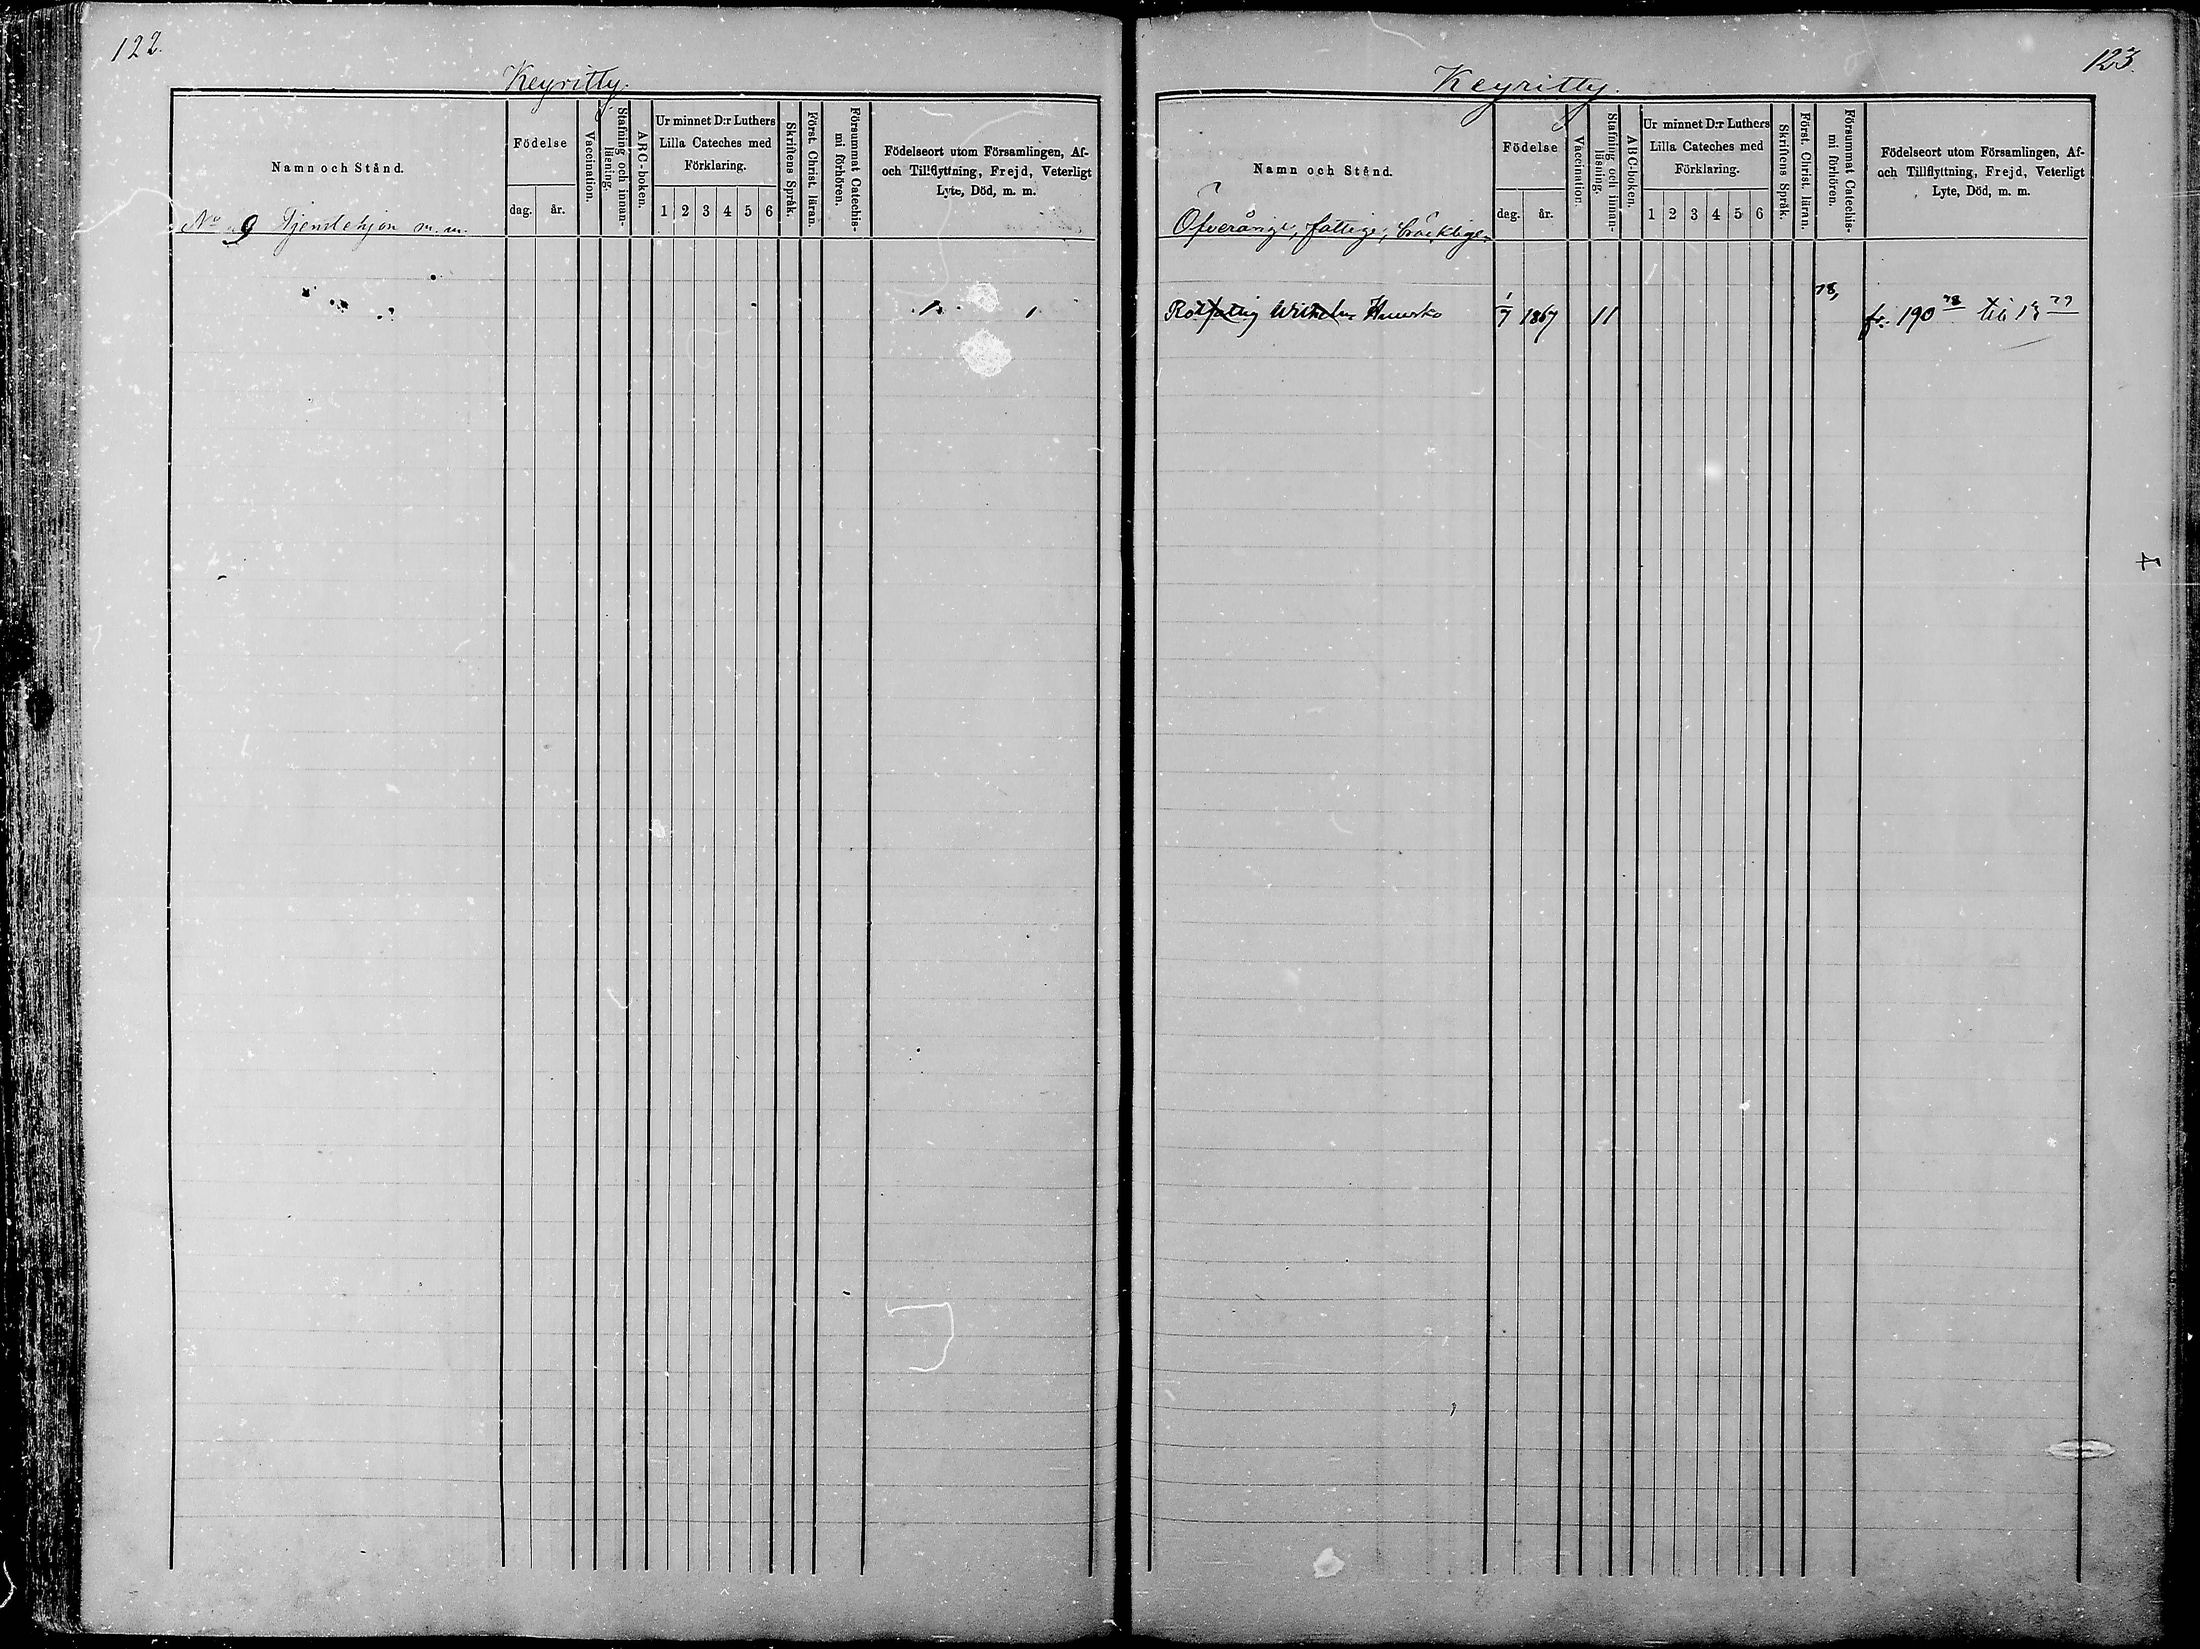 122.
Keyritty.
Namn och Stånd.
Födelse
dag.
år.
Vaccination.
Stafning och innan-
läsning.
ABC-boken.
Ur minnet D:r Luthers
Lilla Cateches med
Förklaring.
1 2 3 4 5 6
Skriftens Språk.
Först. Christ. läran.
Försummat Catechis-
mi förhören.
Födelseort utom Församlingen, Af-
och Tillflyttning, Frejd, Veterligt
Lyte, Död, m. m.
No 9 Tjenstehjon m. m.
123.
Keyritty.
Namn och Stånd.
Födelse
dag.
år.
Vaccination.
Stafning och innan-
läsning.
ABC-boken.
Ur minnet D:r Luthers
Lilla Cateches med
Förklaring.
1 2 3 4 5 6
Skriftens Språk.
Först. Christ. läran.
Försummat Catechis-
mi förhören.
Födelseort utom Församlingen, Af-
och Tillflyttning, Frejd, Veterligt
Lyte, Död, m. m.
Öfverårige, fattige, bräcklige
Wilhelm 1/7 1867 11 78, fr. 190 78 till 79